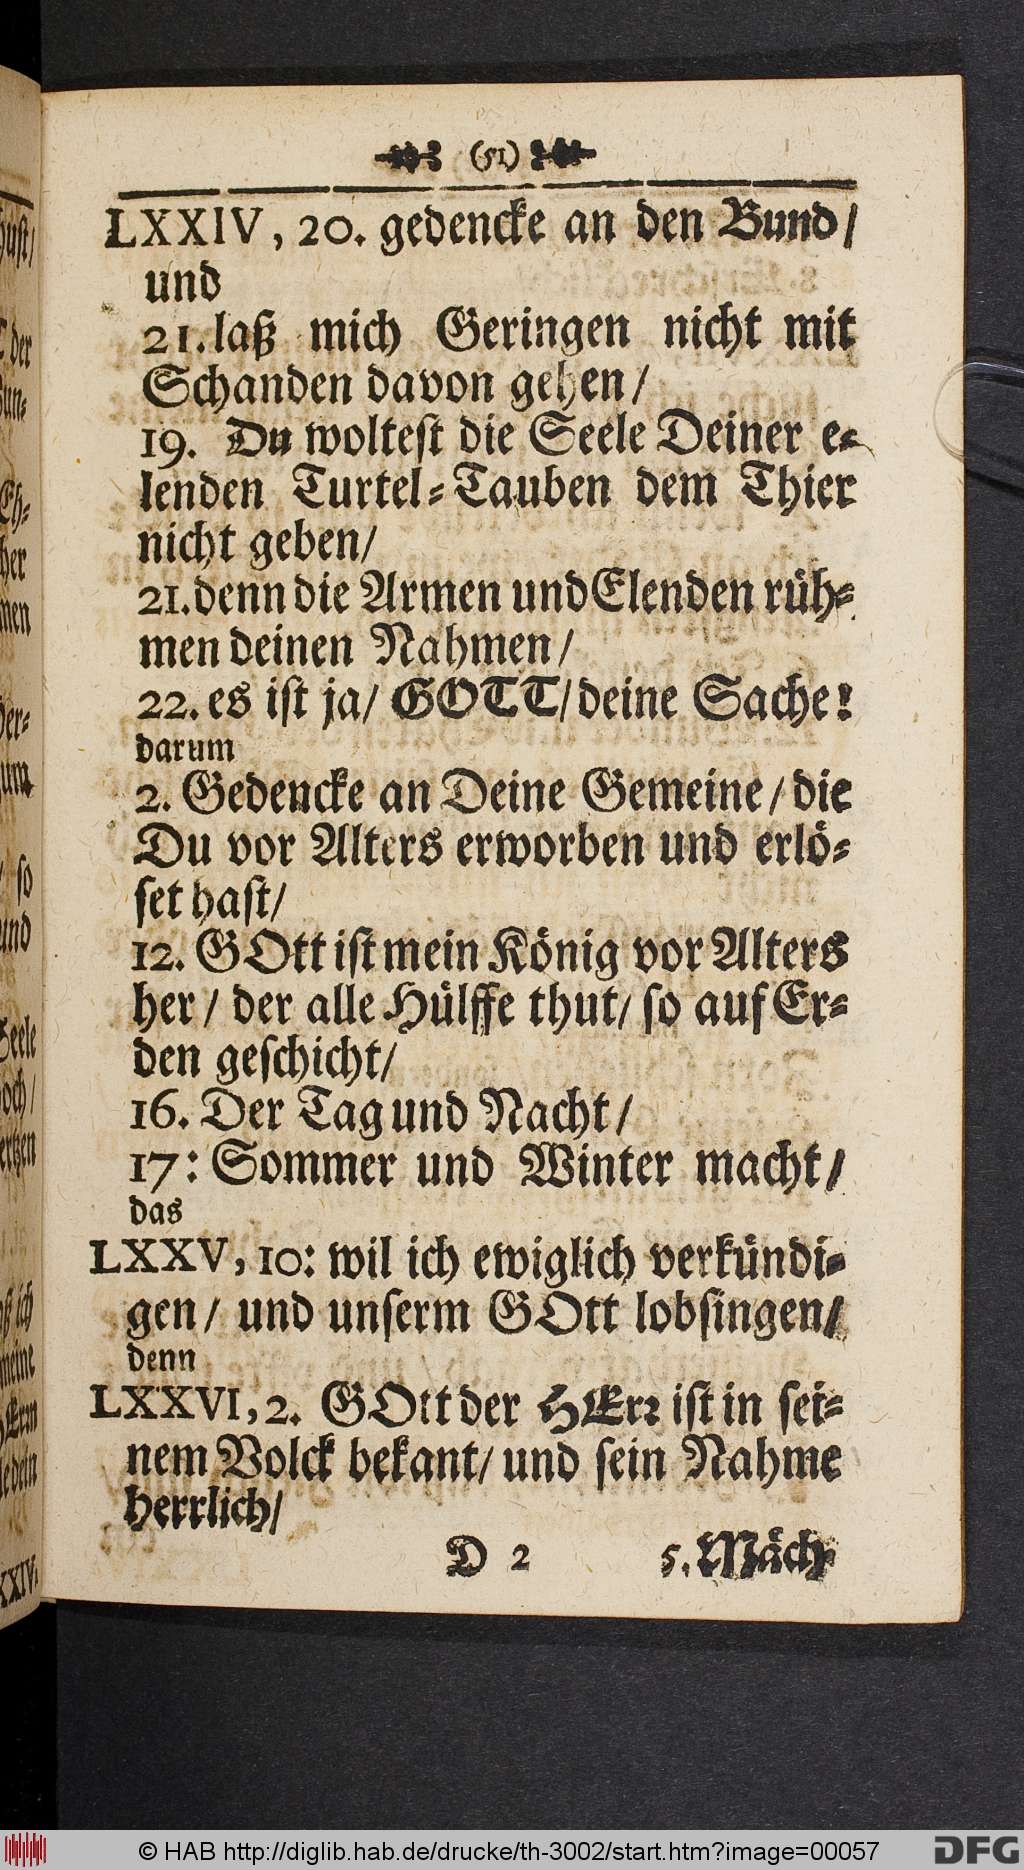 (51)
LXXIV, 20. gedencke an den Bund/
und
21. laß mich Geringen nicht mit
Schanden davon gehen/
19. Du woltest die Seele Deiner e-
lenden Turtel-Tauben dem Thier
nicht geben/
21. denn die Armen und Elenden rüh-
men deinen Nahmen/
22. es ist ja/ GOTT/ deine Sache!
darum
2. Gedencke an Deine Gemeine/ die
Du vor Alters erworben und erlö-
set hast/
12. GOtt ist mein König vor Alters
her/ der alle Hülffe thut/ so auf Er-
den geschicht/
16. Der Tag und Nacht/
17: Sommer und Winter macht/
das
LXXV, 10: wil ich ewiglich verkündi-
gen/ und unserm GOtt lobsingen/
denn
LXXVI, 2. GOtt der HErr ist in sei-
nem Volck bekant/ und sein Nahme
herrlich/
D 2 5. Mäch-
© HAB http://diglib.hab.de/drucke/th-3002/start.htm?image=00057
DFG